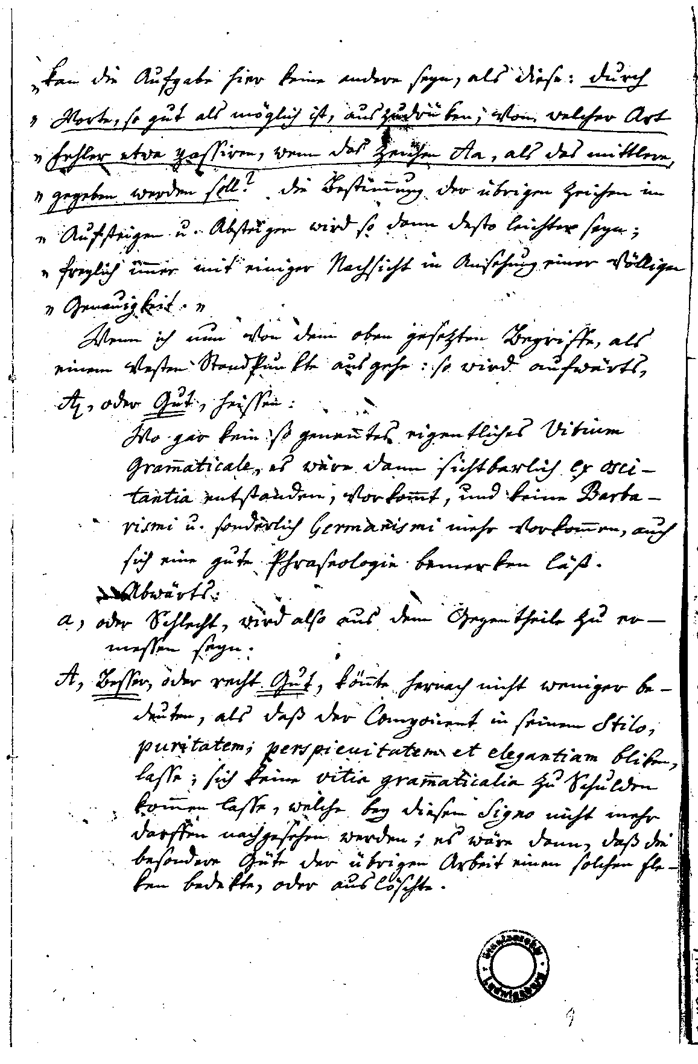 „kan die Aufgabe hier keine andere seyn, als diese: durch
„Worte, so gut als möglich ist, auszudrüken, von welcher Art
„Fehler etwa passiren, wenn das Zeichen Aa, als das mittlere,
„gegeben werden soll? die Bestim̅ung der übrigen Zeichen im
„Aufsteigen u. Absteigen wird so dann desto leichter seyn;
„freylich im̅er mit einiger Nachsicht in Ansehung einer völligen
„Genauigkeit. „
Wenn ich nun von dem oben gesetzten Begriffe, als
einem vesten Standpunkte ausgehe: so wird aufwärts,
oder Gut, heissen:
Wo gar kein so genan̅tes eigentliches Vitium
Gram̅aticale, es wäre dann sichtbarlich ex osci-
tantia entstanden, vorkom̅t, und keine Barba-
rismi u. sonderlich Germanismi mehr vorkom̅en, auch
sich eine gute Phraseologie bemerken läßt.
Abwärts:
a, oder Schlecht, wird also aus dem Gegentheile zu er-
messen seyn.
A, Besser, oder recht Gut, kön̅te hernach nicht weniger be-
deuten, als daß der Component in seinem Stilo,
puritatem, perspicuitatem et elegantiam bliken,
lasse; sich keine vitia gram̅aticalia zu Schulden
kom̅en lasse, welche bey diesem Signo nicht mehr
dörffen nachgesehen werden; es wäre dann, daß die
besondere Güte der übrigen Arbeit einen solchen Fle-
ken bedekte, oder auslöschte.
Staatsarchiv
Ludwigsburg